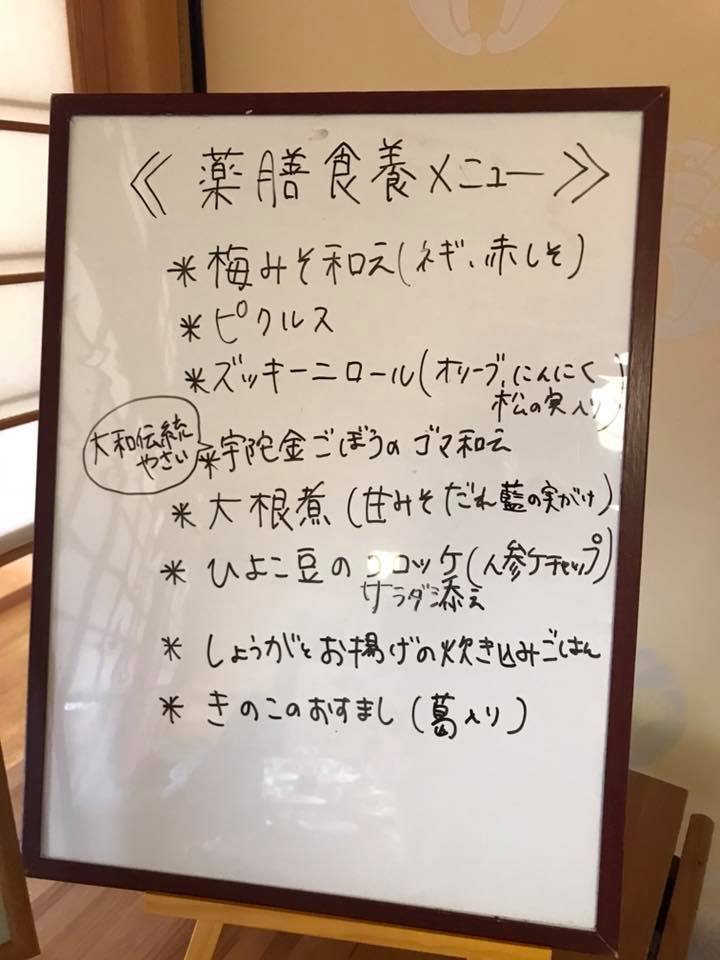 ≪ 薬膳食養メニュー ≫
* 梅みそ和え(ネギ、赤しそ)
* ピクルス
* ズッキーニロール(オリーブ,にんにく
松の実入り)
大和伝統
やさい
* 宇陀金ごぼうのゴマ和え
* 大根煮(甘みそだれ藍の実がけ)
* ひよこ豆のコロッケ(人参ケチャップ)
サラダ添え
* しょうがとお揚げの炊き込みごはん
* きのこのおすまし(葛入り)